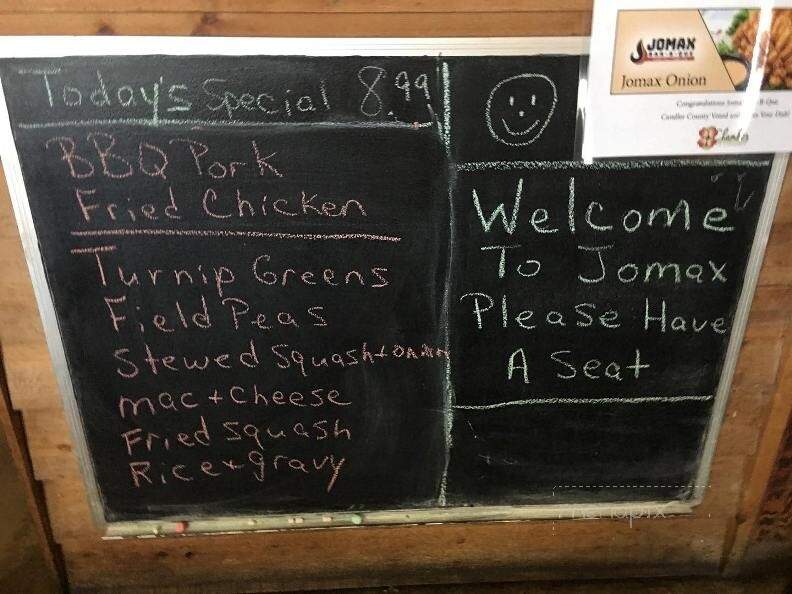 Today's Special 8.99
BBQ Pork
Fried Chicken
Turnip Greens
Field Peas
Stewed Squash + onion
mac + cheese
Fried Squash
Rice + gravy
Welcome
To Jomax
Please Have
A Seat
JOMAX
BAR-B-QUE
Jomax Onion
Congratulations Jomax B Que
Candler County Voted Your Dish!